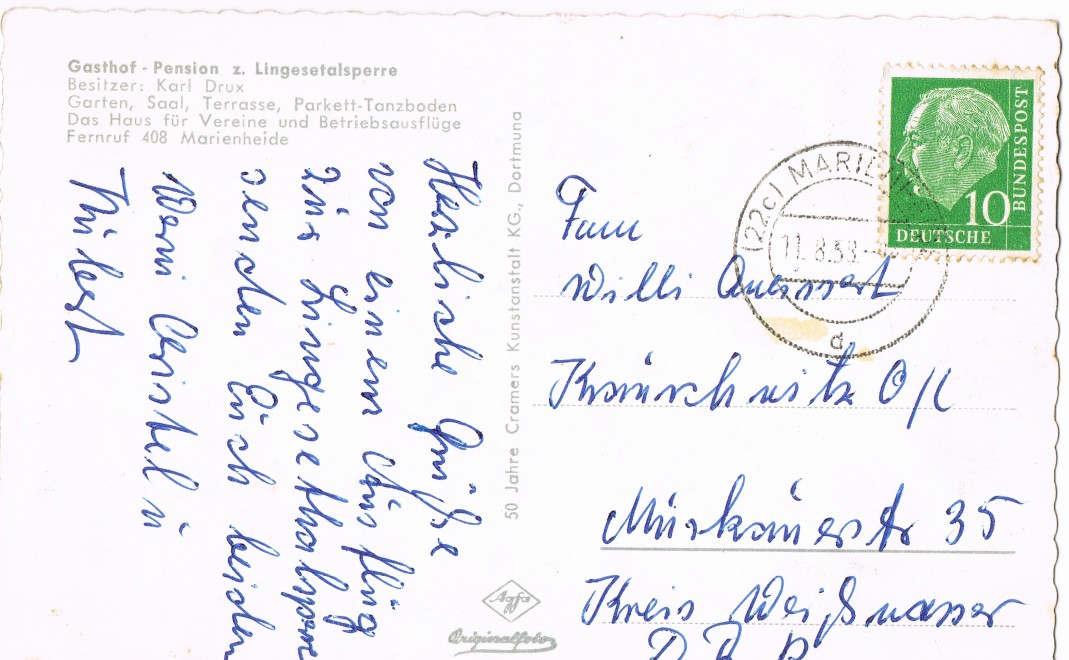 Gasthof - Pension z. Lingesetalsperre
Besitzer: Karl Drux
Garten, Saal, Terrasse, Parkett-Tanzboden
Das Haus für Vereine und Betriebsausflüge
Fernruf 408 Marienheide
Herzliche Grüße
von einem Ausflug
zur Lingesethalsperre
senden Euch beiden
Werni Christel u
50 Jahre Cramers Kunstanstalt KG., Dortmund
Agfa
Originalfoto
(22c) MARIENH
11.8.58.
d
10
DEUTSCHE
BUNDESPOST
Fam
Willi
Krauschwitz O/L
Muskauerstr 35
Kreis Weißwasser
D D R